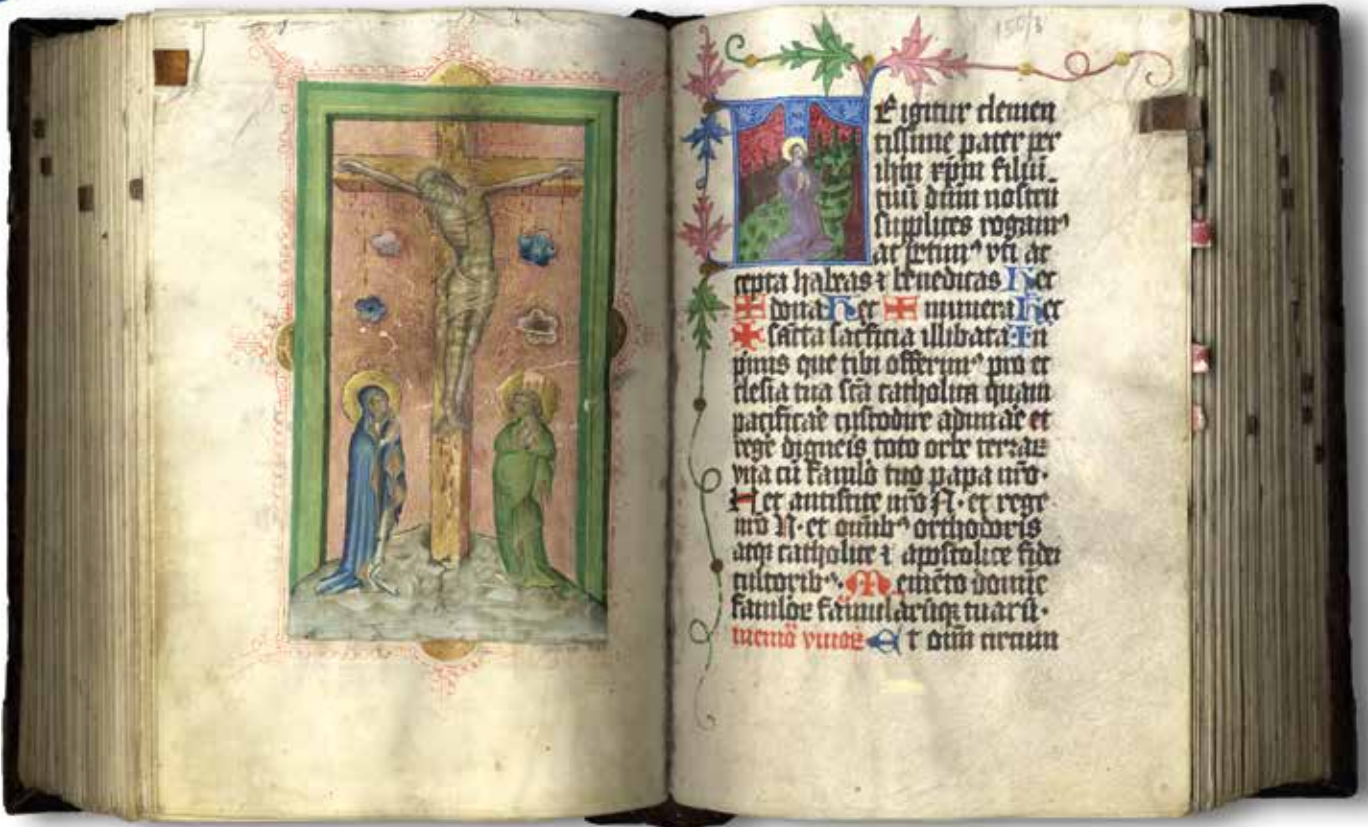 150/3
TE igitur clemen
tissime pater per
ihm xpm filiu
tuu dnm nostru
supplices rogam⁹
ac petim⁹ vti ac
cepta habeas ⁊ benedicas Hec
✠ dona Hec ✠ munera Hec
✠ sacta sacficia illibata In
pimis que tibi offerim⁹ pro ec
clesia tua scā catholica quam
pacificare custodire adunare et
rege digneis toto orbe terraꝝ
vna cū famlo tuo papa nro·
N et antistite nro N· et rege
nro N· et omnib⁹ orthodoxis
atqꝫ catholice ⁊ apostolice fidei
cultorib⁹· Memēto domine
famloꝝ famularūqꝫ tuarū·
memo viuoꝝ Et oim circum